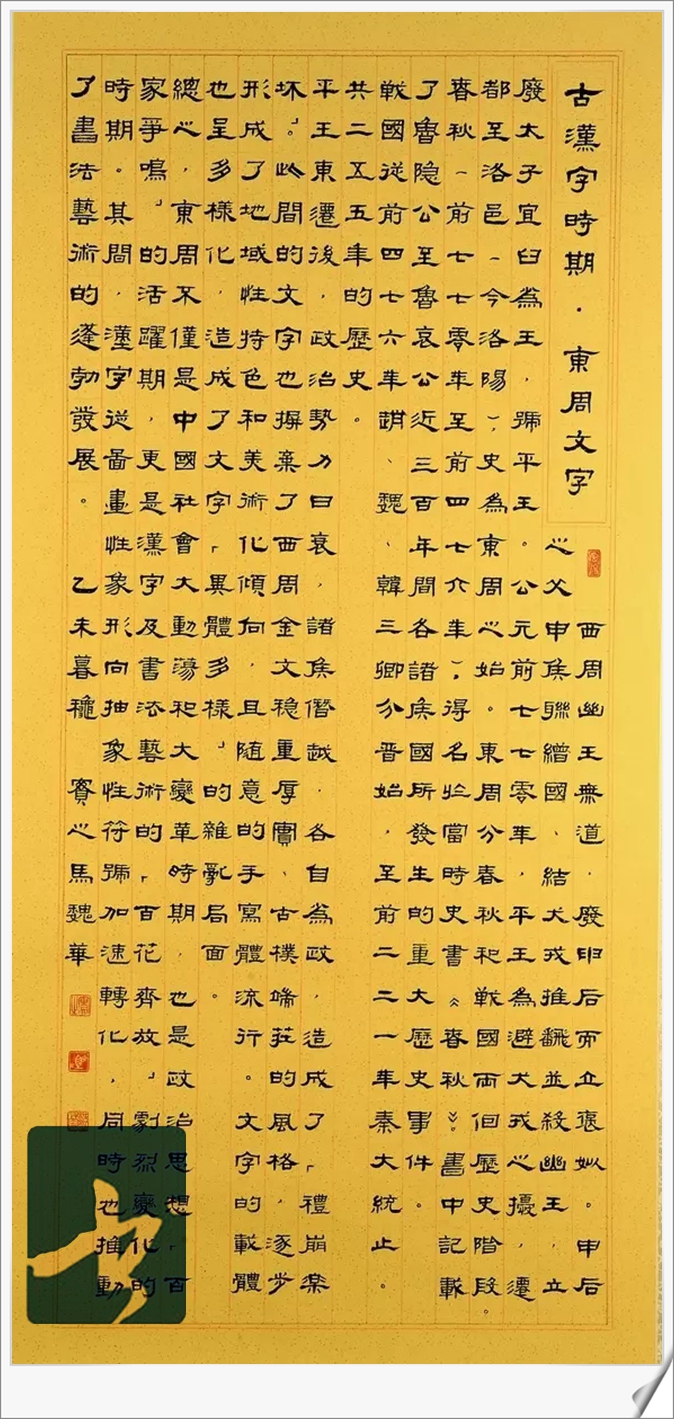 古漢字時期·東周文字
西周幽王無道,廢申后而立褒姒。申后
之父申侯聯繒國、結犬戎推翻並殺幽王,立
廢太子宜臼為王,號平王。公元前七七零年,平王為避犬戎之擾,遷
都至洛邑(今洛陽),史為東周之始。東周分春秋和戰國兩個歷史階段。
春秋(前七七零年至前四七六年),得名於當時史書《春秋》。書中記載
了魯隐公至魯哀公近三百年間各諸侯國所發生的重大歷史事件。
戰國從前四七六年趙、魏、韓三卿分晉始,至前二二一年秦大統止。
共二五五年的歷史。
平王東遷後,政治勢力日衰,諸侯僭越,各自為政,造成了「禮崩樂
坏」。此間的文字也摒棄了西周金文稳重厚實、古樸端莊的風格,逐步
形成了地域性特色和美術化傾向,且随意的手寫體流行。文字的載體
也呈多樣化,造成了文字「異體多樣」的雜亂局面。
總之,東周不僅是中國社會大動蕩和大變革時期,也是政治思想「百
家爭鳴」的活躍期,更是漢字及書法藝術的「百花齊放」劇烈變化的
時期。其間,漢字從圖畫性象形向抽象性符號加速轉化,同時也推動
了書法藝術的蓬勃發展。 乙未暮穐 之馬魏華